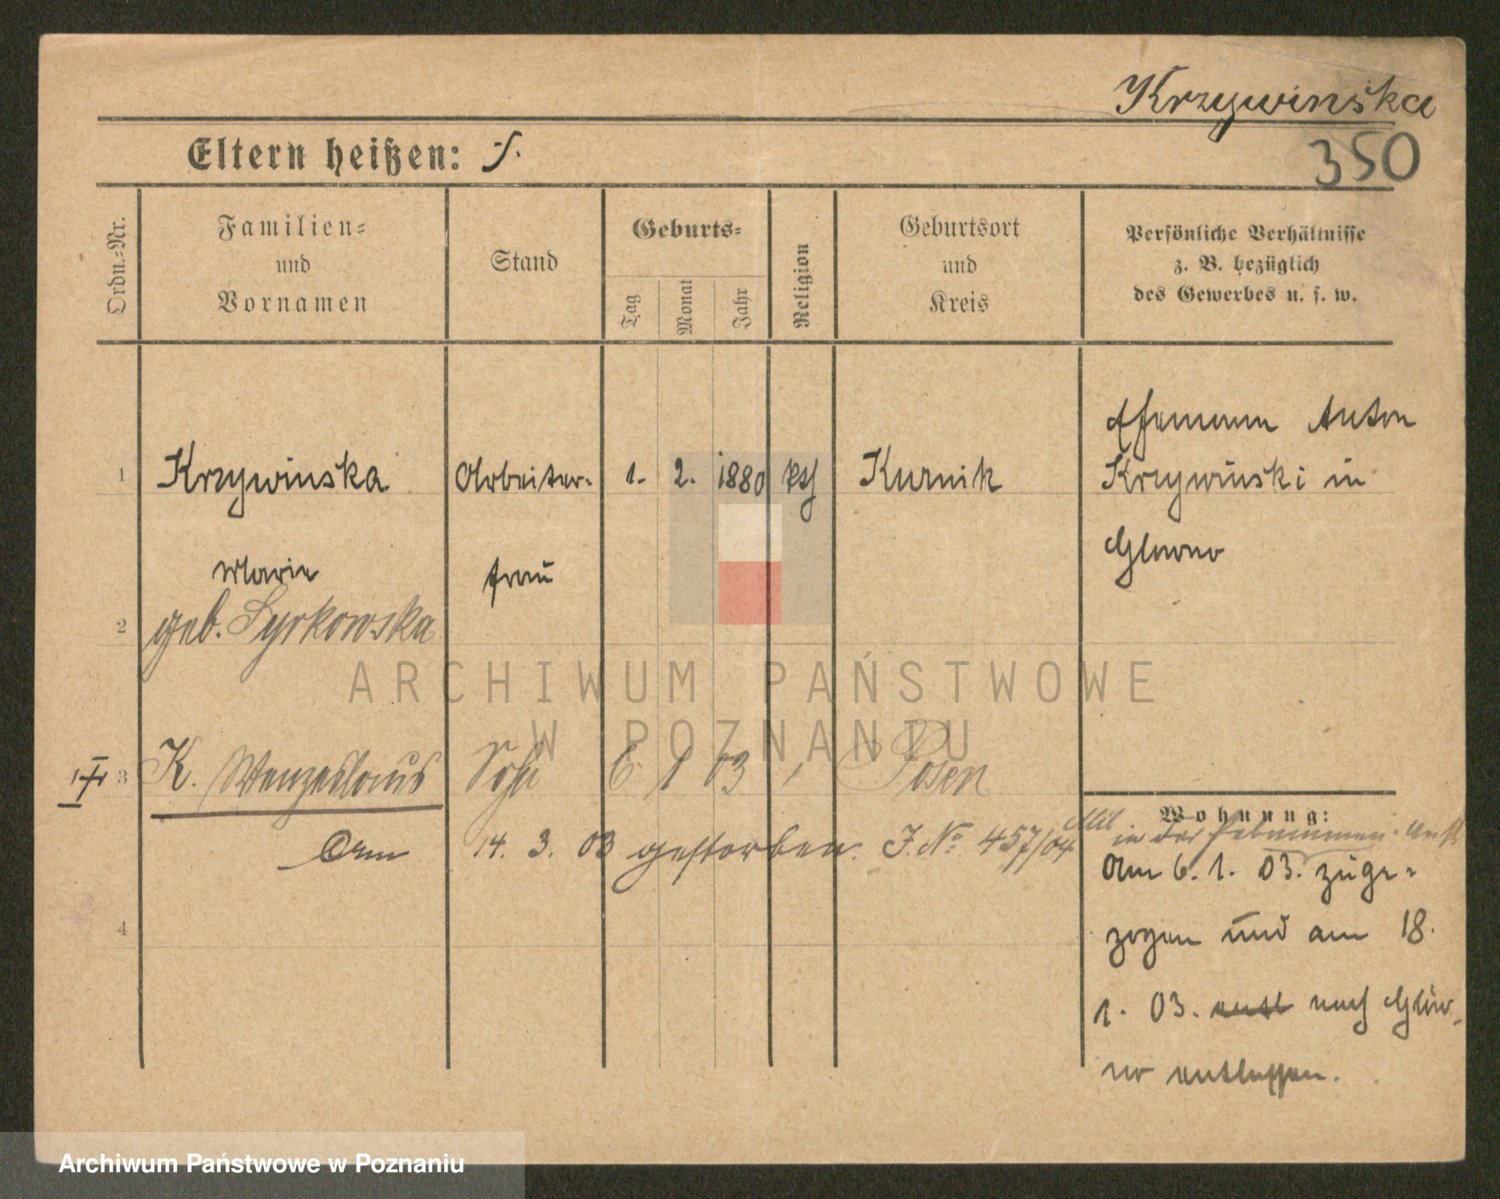 Krzywinska
350
Eltern heißen: ./.
Ordn.-Nr.
Familien-
und
Vornamen
Stand
Geburts-
Tag
Monat
Jahr
Religion
Geburtsort
und
Kreis
Persönliche Verhältnisse
z. B. bezüglich
des Gewerbes u. s. w.
Ehemann Anton
1 Krzywinska Arbeiter- 1. 2. 1880 kth Kurnik Krzywinski in
Glowno
Marie frau
2 geb. Syrkowska
ARCHIWUM PAŃSTWOWE
W POZNANIU
3 K. Wenzeslaus Sohn 6 1 03 Posen
Wohnung:
in der Hebammen-Anst
Am 14. 3. 03 gestorben. J. No 457/04
Am 6. 1. 03. zuge-
zogen und am 18.
4
1. 03. nach Glow-
no entlassen.
Archiwum Państwowe w Poznaniu